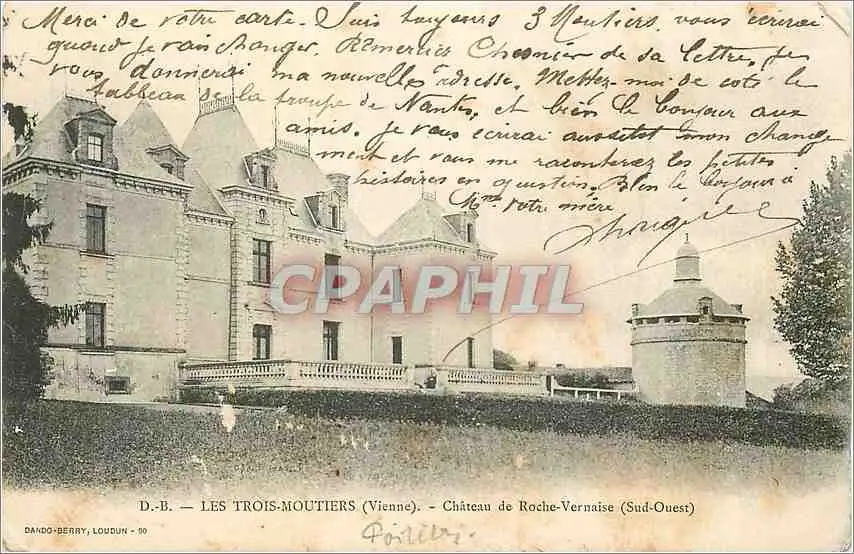 Merci de votre carte. Suis toujours 3 Moutiers. vous écrirai
quand je vais changer. Remerciez Chesnier de sa lettre, je
vous donnerai ma nouvelle adresse. Mettez-moi de coté le
tableau de la troupe de Nantes, et bien le bonjour aux
amis. Je vous écrirai aussitot mon change
ment et vous me raconterez les petites
histoires en question. Bien le bonjour à
Mme votre mère
CPAPHIL
D.-B. — LES TROIS-MOUTIERS (Vienne). - Château de Roche-Vernaise (Sud-Ouest)
DANDO-BERRY, LOUDUN - 90